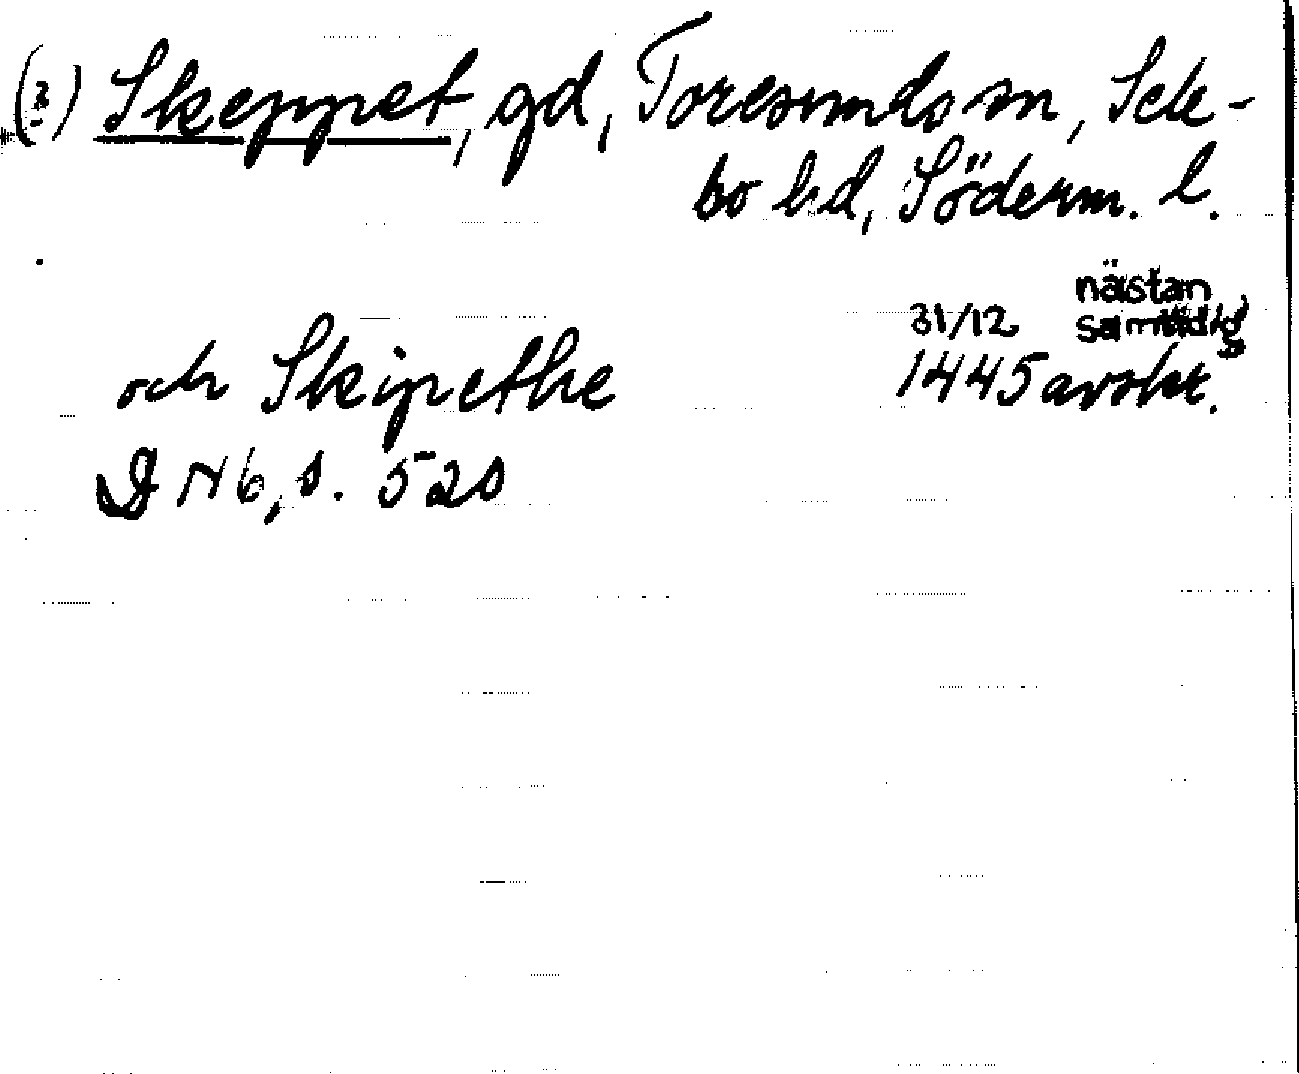 (2) Skeppet, gd, Toresunds sn, Sele-
bo hd, Söderm. l.
nästan
31/12 samtidig
och Skipethe 1445 avskr.
DN 6, s. 520